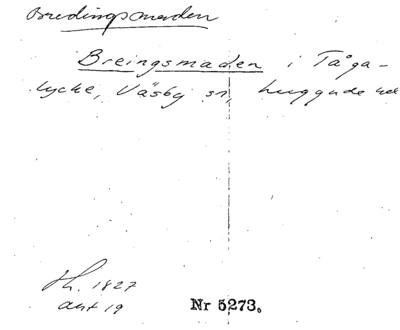 Bredingsmaden
Breingsmaden i Tåga-
lycke, Väsby sn, Luggude hd
Sk. 1827
akt 19
Nr 5273.